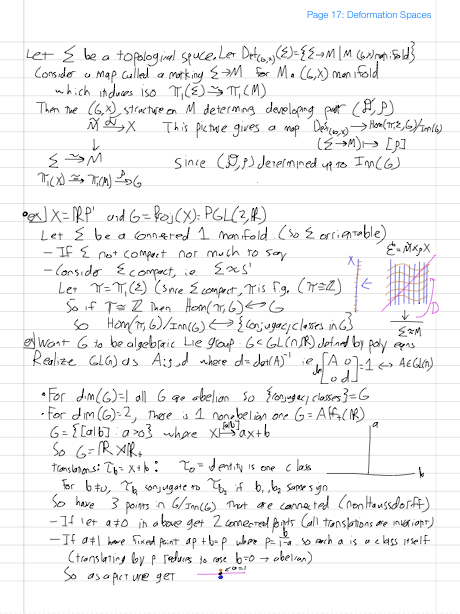 Page 17: Deformation Spaces
Let Σ be a topological space. Let Def_(G,X)(Σ) = {Σ→M | M (G,X) manifold}
Consider a map called a marking Σ→M for M a (G,X) manifold
which induces iso π₁(Σ) ⥲ π₁(M)
Then the (G,X) structure on M determines developing pair (𝒟,ρ)
M̃ → X This picture gives a map Def_(G,X) → Hom(π₁Σ,G)/Inn(G)
↓ (Σ→M) ↦ [ρ]
Σ ⥲ M since (𝒟,ρ) determined up to Inn(G)
π₁(X) ≅ π₁(M) →ρ G
ex) X = ℝP¹ and G = Proj(X) = PGL(2,ℝ)
Let Σ be a connected 1 manifold (so Σ orrientable)
- If Σ not compact not much to say
- Consider Σ compact, i.e. Σ ≈ S¹
Let π = π₁(Σ) (since Σ compact, π is f.g. (π ≅ ℤ)
So if π ≅ ℤ then Hom(π,G) ↔ G
So Hom(π,G)/Inn(G) ↔ {conjugacy classes in G}
X ← D
↓
Σ ≈ M
ex) Want G to be algebraic Lie group G < GL(n,ℝ) defined by poly eqns
Realize GL(n) as A,d where d = det(A)⁻¹ ie det[A 0
0 d] = 1 ↔ A∈GL(n)
• For dim(G)=1 all G are abelian so {conjugacy classes} = G
• For dim(G)=2, there is 1 nonabelian one G = Aff₊(ℝ)
G = {[a|b] : a>0} where x ↦ ax+b
So G = ℝ ⋊ ℝ₊
a
b
translations: τ_b = x+b : τ₀ = identity is one class
For b≠0, τ_b₁ conjugate to τ_b₂ if b₁, b₂ same sign
So have 3 points in G/Inn(G) that are connected (nonHaussdorff)
- If let a≠0 in above get 2 connected points (all translations are invariant)
- If a≠1 have fixed point ap+b=p where p = b/1-a so each a is a class itself
(translating by p reduces to case b=0 → abelian)
So as a picture get a=1